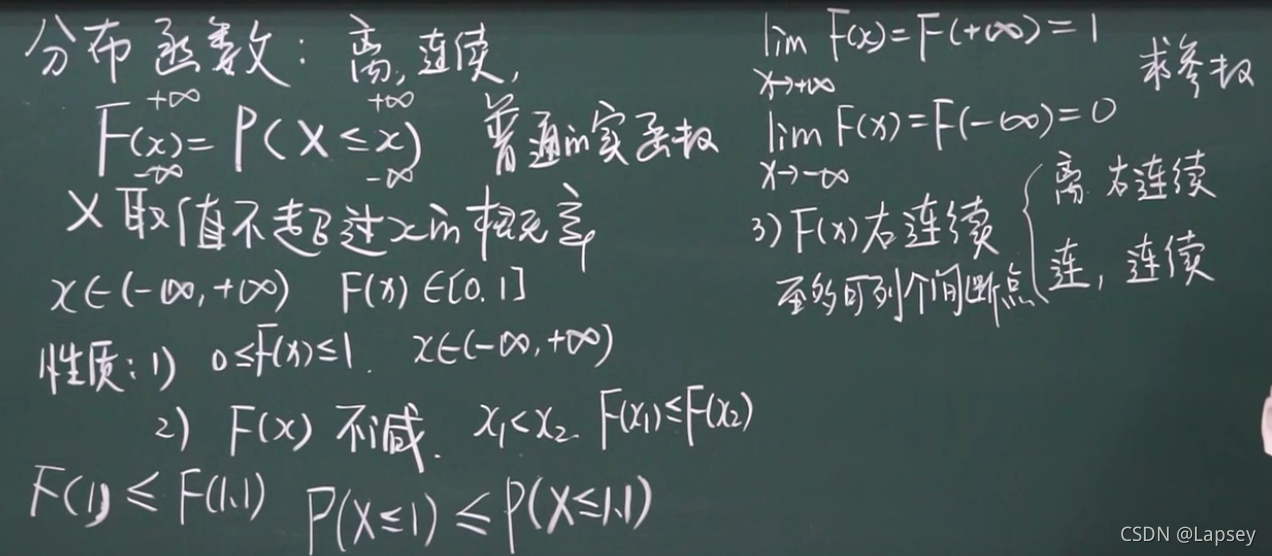 分布函数：离，连续，
+∞ +∞
F(x)=P(X≤x) 普通的实函数
-∞ -∞
X取值不超过x的概率
x∈(-∞,+∞) F(x)∈[0.1]
性质：1) 0≤F(x)≤1. x∈(-∞,+∞)
2) F(x) 不减. x₁<x₂ F(x₁)≤F(x₂)
F(1)≤F(1.1) P(X≤1)≤P(X≤1.1)
lim F(x)=F(+∞)=1
x→+∞
求参数
lim F(x)=F(-∞)=0
x→-∞
3) F(x)右连续
至多可列个间断点
离. 右连续
连，连续
CSDN @Lapsey